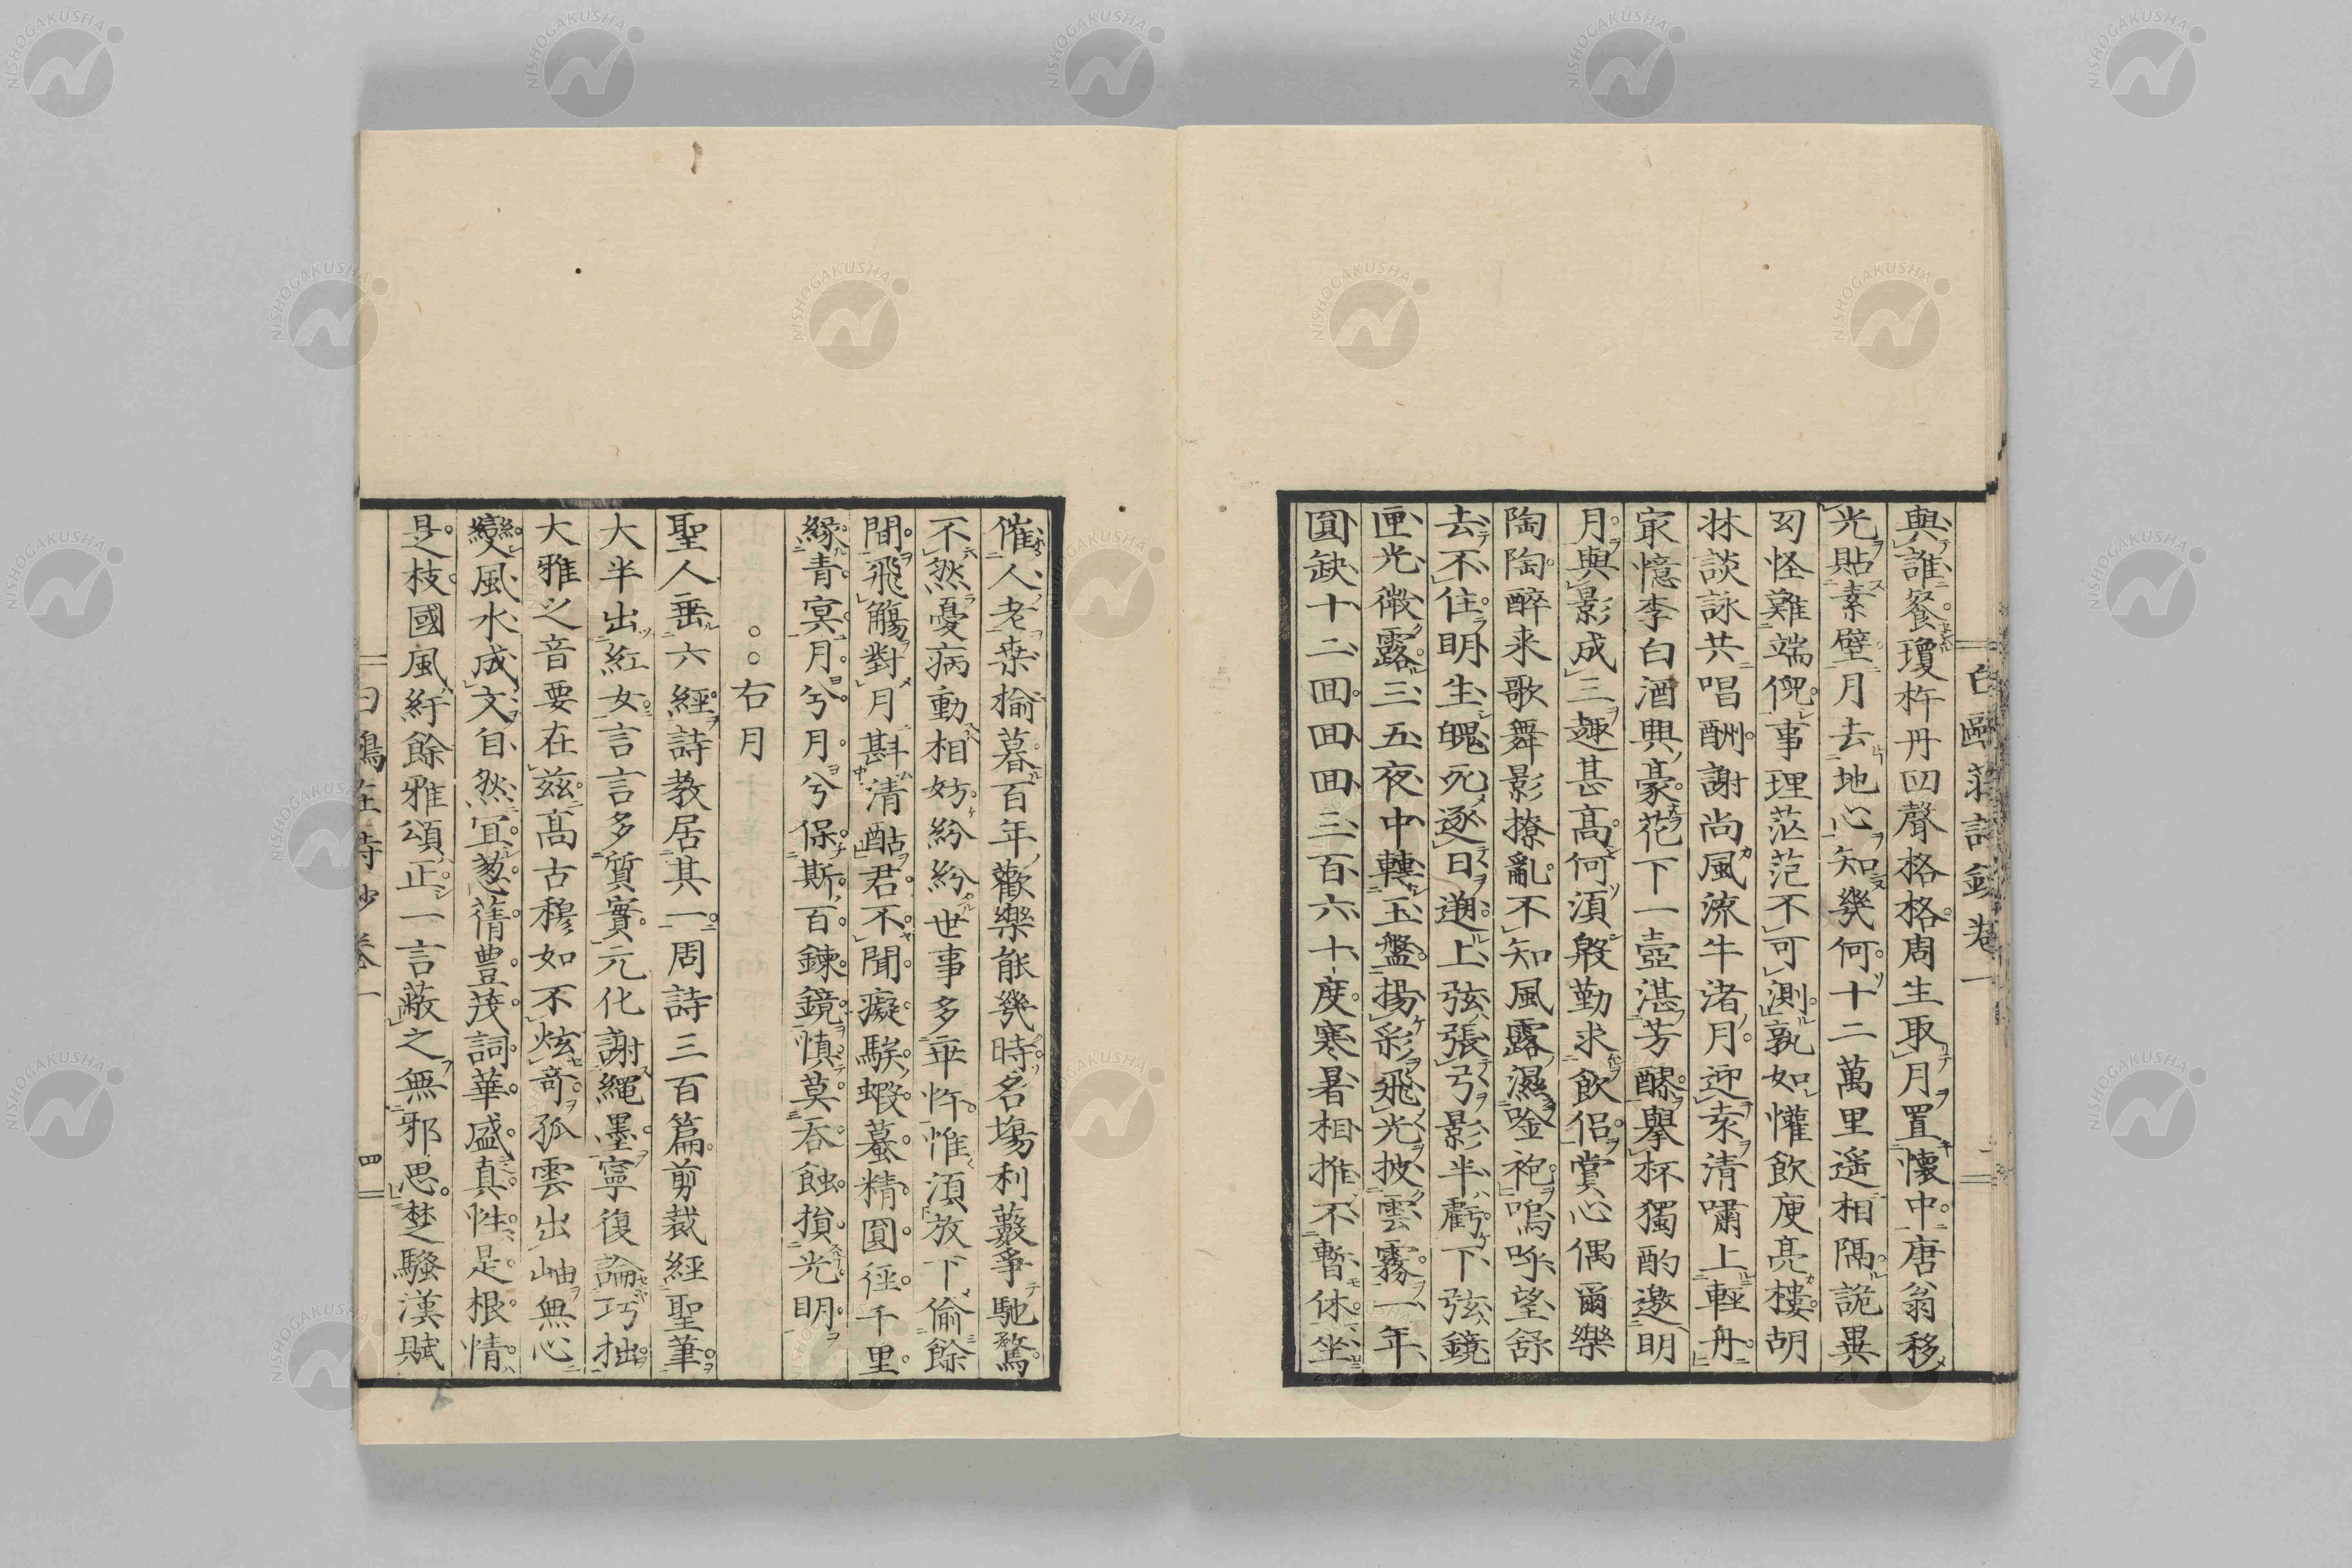 白鷗莊詩鈔卷一
與誰餐瓊杵丹四聲格格周生取月置懷中唐翁移
光貼素壁月去地心知幾何十二萬里遥相隔詭異
幻怪難端倪事理茫范不可測孰如懽飲庾亮樓胡
牀談詠共唱酬謝尚風流牛渚月迎素清嘯上輕舟
㝡憶李白酒興豪花下一壺湛芳醪擧杯獨酌邀明
月與影成三趣甚高何須殷勤求飲侶賞心偶爾樂
陶陶醉来歌舞影撩亂不知風露濕袍嗚呼望舒
去不住明生魄死逐日遡上弦張弓影半虧下弦鏡
匣光微露三五夜中轉玉盤揚彩飛光披雲霧一年
圓缺十二囬囬囬三百六十度寒暑相推不暫休坐
催人老桒楡暮百年歡樂能幾時名塲利藪爭馳騖
不然憂病動相妨紛紛世事多乖忤惟須放下偷餘
間飛觴對月斟清酤君不聞癡騃蝦蟇精圓徑千里
緣青冥月兮月兮保斯百鍊鏡慎莫呑蝕損光明
○○右月
聖人垂六經詩教居其一周詩三百篇剪裁經聖筆
大半出紅女言言多質實元化謝繩墨寧復論巧拙
大雅之音要在兹高古穆如不炫奇孤雲出岫無心
變風水成文自然宜葱蒨豊茂詞華盛真性是根情
是枝國風紆餘雅頌正一言蔽之無邪思楚騷漢賦
白鷗莊詩鈔卷一
四